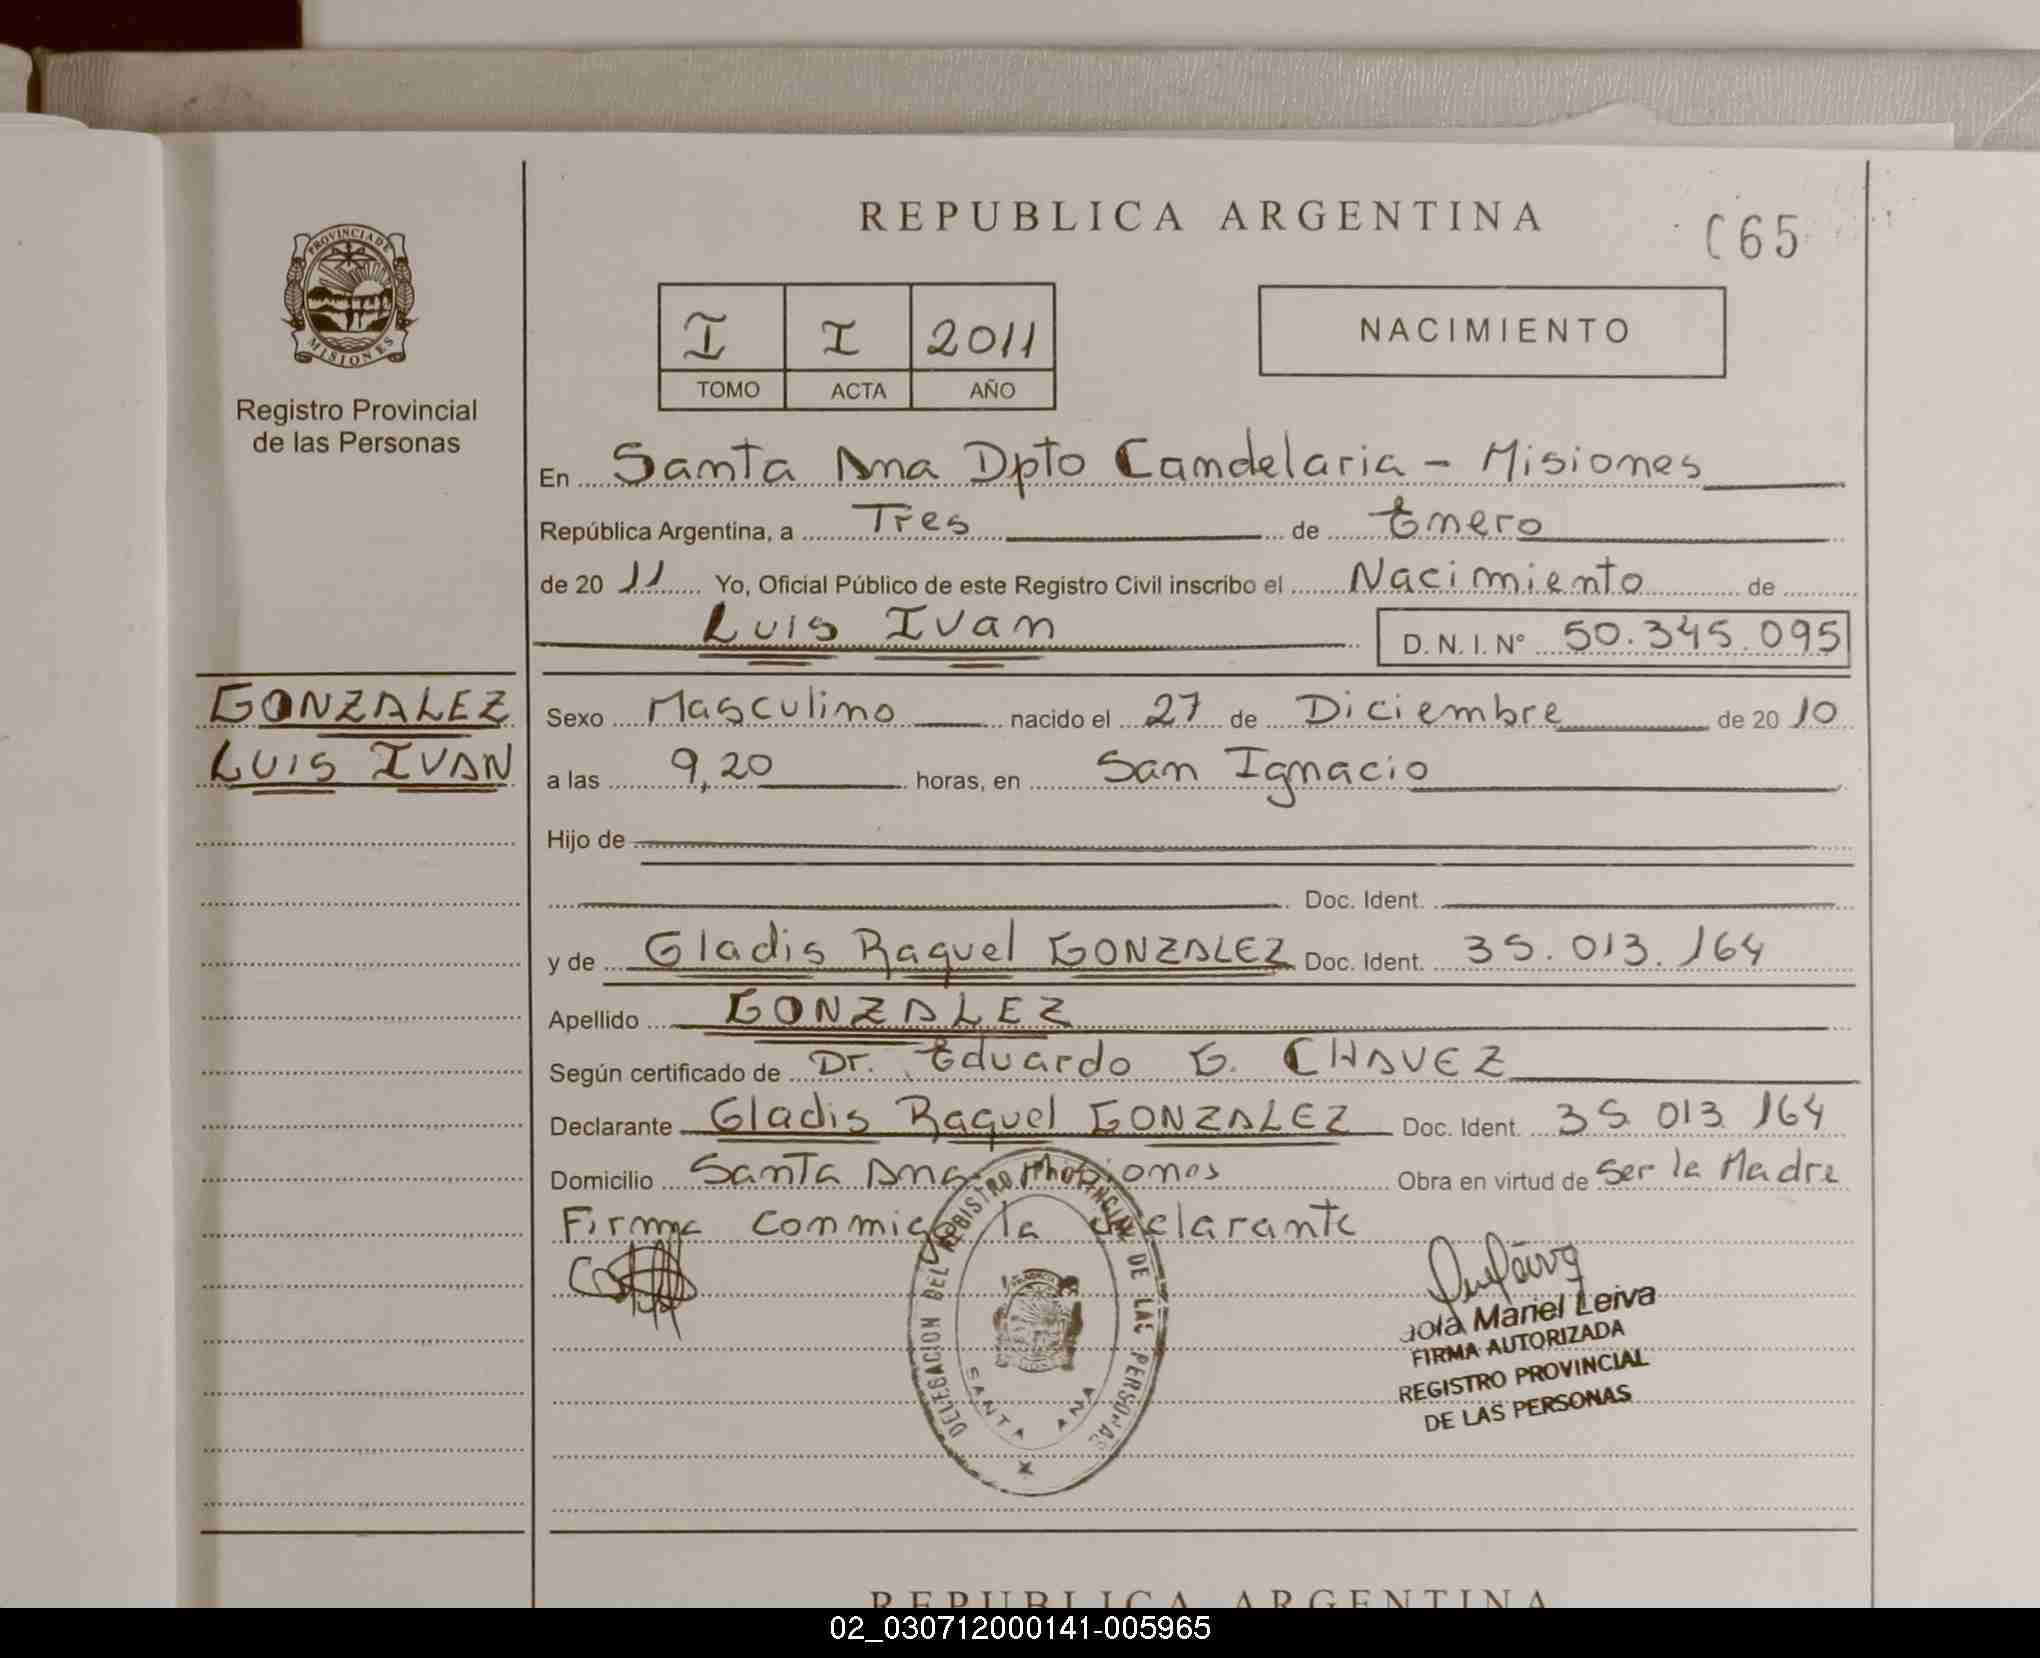 REPUBLICA ARGENTINA
C65
PROVINCIA DE
MISIONES
Registro Provincial
de las Personas
I I 2011
TOMO ACTA AÑO
NACIMIENTO
En Santa Ana Dpto Candelaria - Misiones
República Argentina, a Tres de Enero
de 20 11 Yo, Oficial Público de este Registro Civil inscribo el Nacimiento de
Luis Ivan D. N. I. Nº 50.345.095
GONZALEZ
LUIS IVAN
Sexo Masculino nacido el 27 de Diciembre de 20 10
a las 9,20 horas, en San Ignacio
Hijo de
Doc. Ident.
y de Gladis Raquel GONZALEZ Doc. Ident. 35.013.164
Apellido GONZALEZ
Según certificado de Dr. Eduardo G. CHAVEZ
Declarante Gladis Raquel GONZALEZ Doc. Ident. 35 013 164
Domicilio Santa Ana Misiones Obra en virtud de Ser la Madre
Firma conmigo la declarante
DELEGACION DEL REGISTRO PROVINCIAL DE LAS PERSONAS
SANTA ANA
aola Mariel Leiva
FIRMA AUTORIZADA
REGISTRO PROVINCIAL
DE LAS PERSONAS
REPUBLICA ARGENTINA
02_030712000141-005965